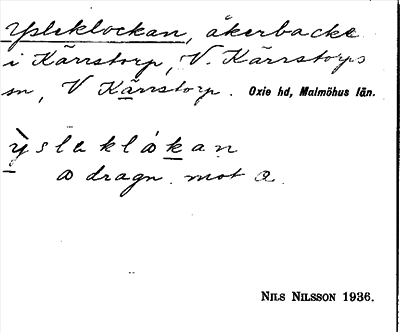 Ysleklockan, åkerbacke
i Kärrstorp, V. Kärrstorps
sn, V Kärrstorp. Oxie hd, Malmöhus län.
ỳsleklåkan
a dragn. mot a.
NILS NILSSON 1936.